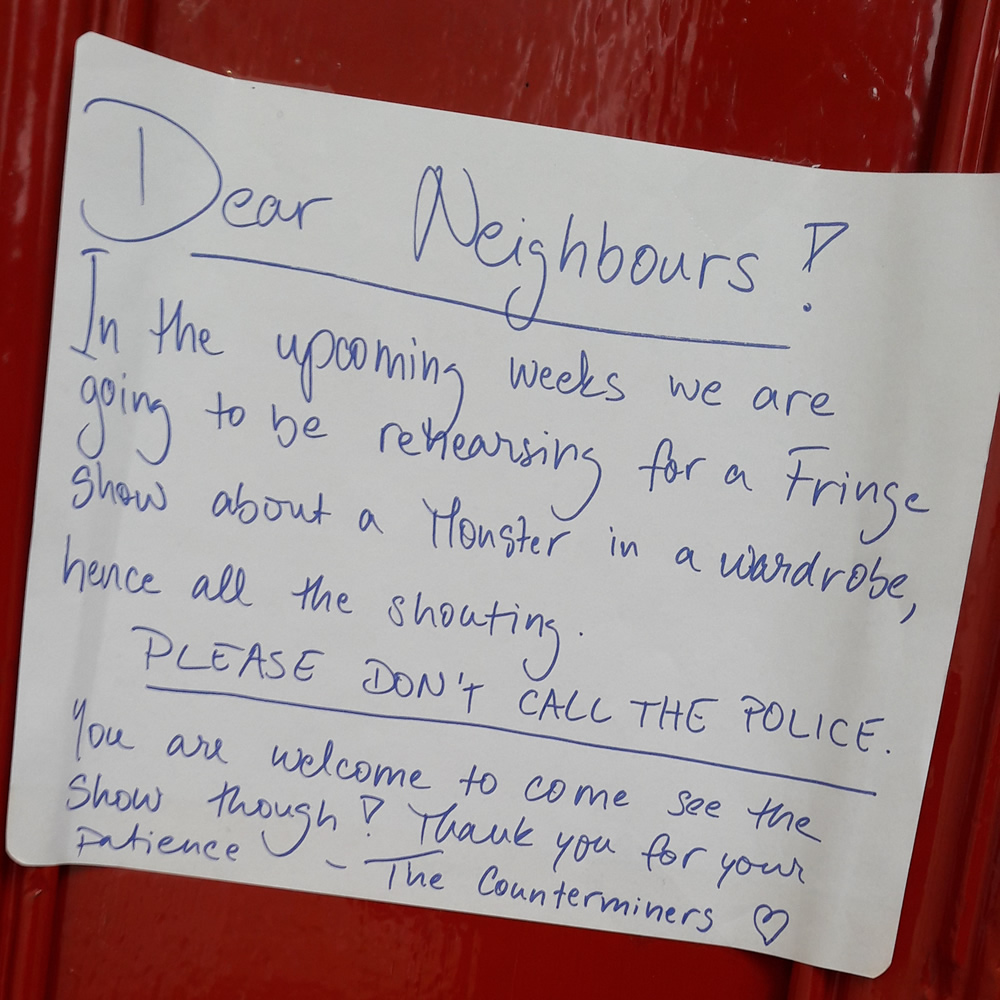 Dear Neighbours!
In the upcoming weeks we are
going to be rehearsing for a Fringe
show about a Monster in a wardrobe,
hence all the shouting.
PLEASE DON'T CALL THE POLICE.
You are welcome to come see the
show though! Thank you for your
patience - The Counterminers ♡